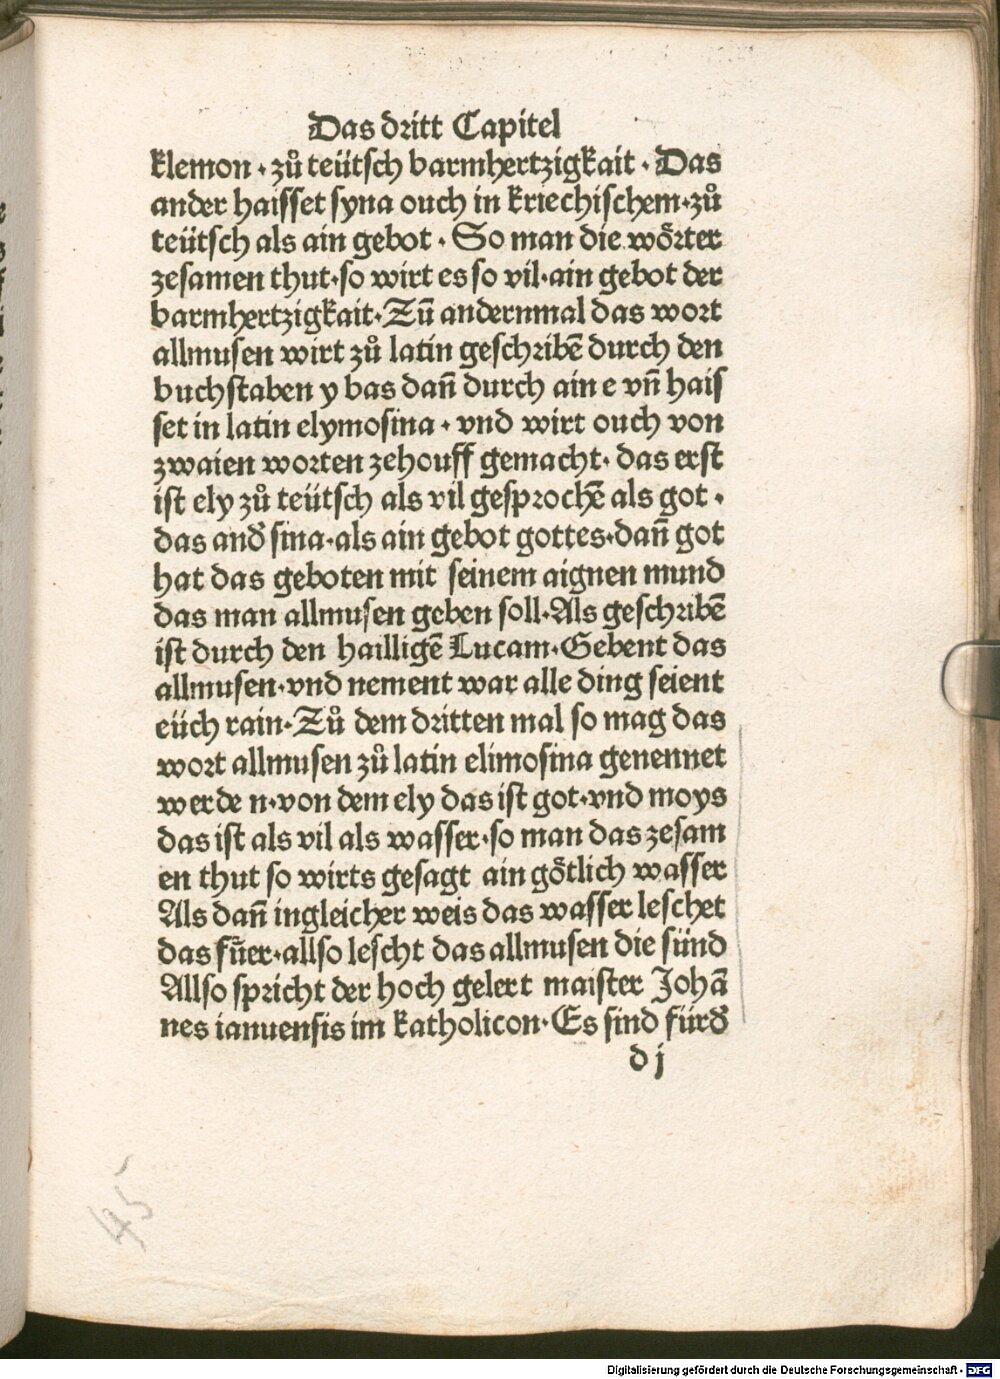 Das dritt Capitel
klemon · zů teütsch barmhertzigkait · Das
ander haisset syna ouch in kriechischem · zů
teütsch als ain gebot · So man die wörter
zesamen thut · so wirt es so vil · ain gebot der
barmhertzigkait · Zū andernmal das wort
allmusen wirt zů latin geschribē durch den
buchstaben y bas dañ durch ain e vñ hais
set in latin elymosina · vnd wirt ouch von
zwaien worten zehouff gemacht · das erst
ist ely zů teütsch als vil gesprochē als got ·
das andʼ sina · als ain gebot gottes · dañ got
hat das geboten mit seinem aignen mund
das man allmusen geben soll · Als geschribē
ist durch den hailligē Lucam · Gebent das
allmusen · vnd nement war alle ding seient
eüch rain · Zů dem dritten mal so mag das
wort allmusen zů latin elimosina genennet
werde n · von dem ely das ist got · vnd moys
das ist als vil als wasser · so man das zesam
en thut so wirts gesagt ain götlich wasser
Als dañ ingleicher weis das wasser leschet
das füer · allso lescht das allmusen die sünd
Allso spricht der hoch gelert maister Johā
nes ianuensis im katholicon · Es sind fürdʼ
d j
45
Digitalisierung gefördert durch die Deutsche Forschungsgemeinschaft - DFG